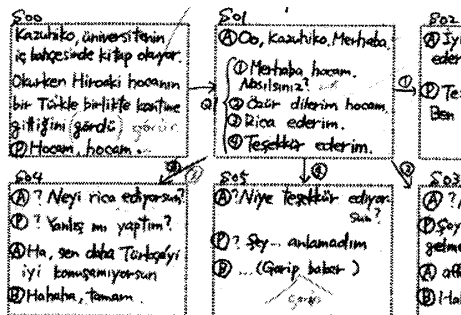 S00
Kazuhiko, üniversitenin
iç bahçesinde kitap okuyor.
Okurken Hiroaki hocanın
bir Türkle birlikte kantine
gittiğini (gördü) görür.
Ⓟ Hocam, hocam.
S01
Ⓐ Oo, Kazuhiko, Merhaba.
Q1
① Merhaba hocam.
Nasılsınız?
② Özür dilerim hocam.
③ Rica ederim.
④ Teşekkür ederim.
①
S02
Ⓐ İyi
eder
Ⓟ Te
Ben
S04
Ⓐ ? Neyi rica ediyorsun?
Ⓟ ? Yanlış mı yaptım?
Ⓐ Ha, sen daha Türkçe'yi
iyi konuşamıyorsun
Ⓑ Hahaha, tamam.
S05
Ⓐ ? Niye teşekkür ediyor
sun?
Ⓟ ? Şey... anlamadım
Ⓑ ... (Garip bakar)
S03
Ⓐ ?
Ⓟ Şey
gelme
Ⓐ aff
Ⓑ Hah